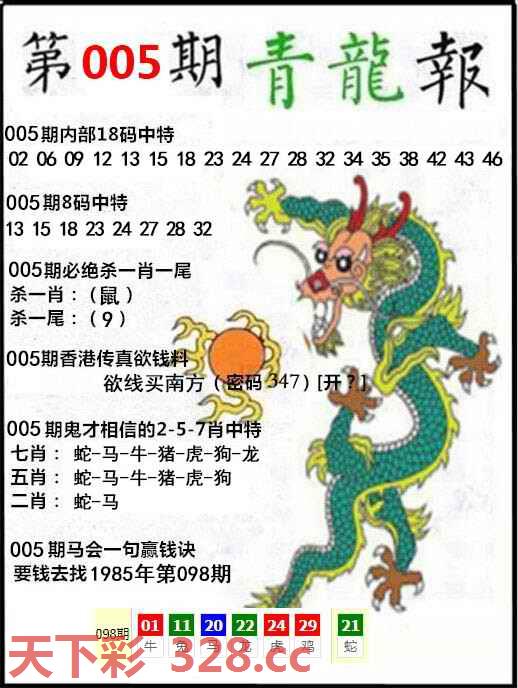 第005期青龍報
005期内部18码中特
02 06 09 12 13 15 18 23 24 27 28 32 34 35 38 42 43 46
005期8码中特
13 15 18 23 24 27 28 32
005期必绝杀一肖一尾
杀一肖：（鼠）
杀一尾：（9）
005期香港传真欲钱料
欲线买南方（密码347）[开?]
005期鬼才相信的2-5-7肖中特
七肖： 蛇-马-牛-猪-虎-狗-龙
五肖： 蛇-马-牛-猪-虎-狗
二肖： 蛇-马
005期马会一句赢钱诀
要钱去找1985年第098期
098期 01 11 20 22 24 29 21
牛 兔 马 龙 虎 鸡 蛇
天下彩 328.cc